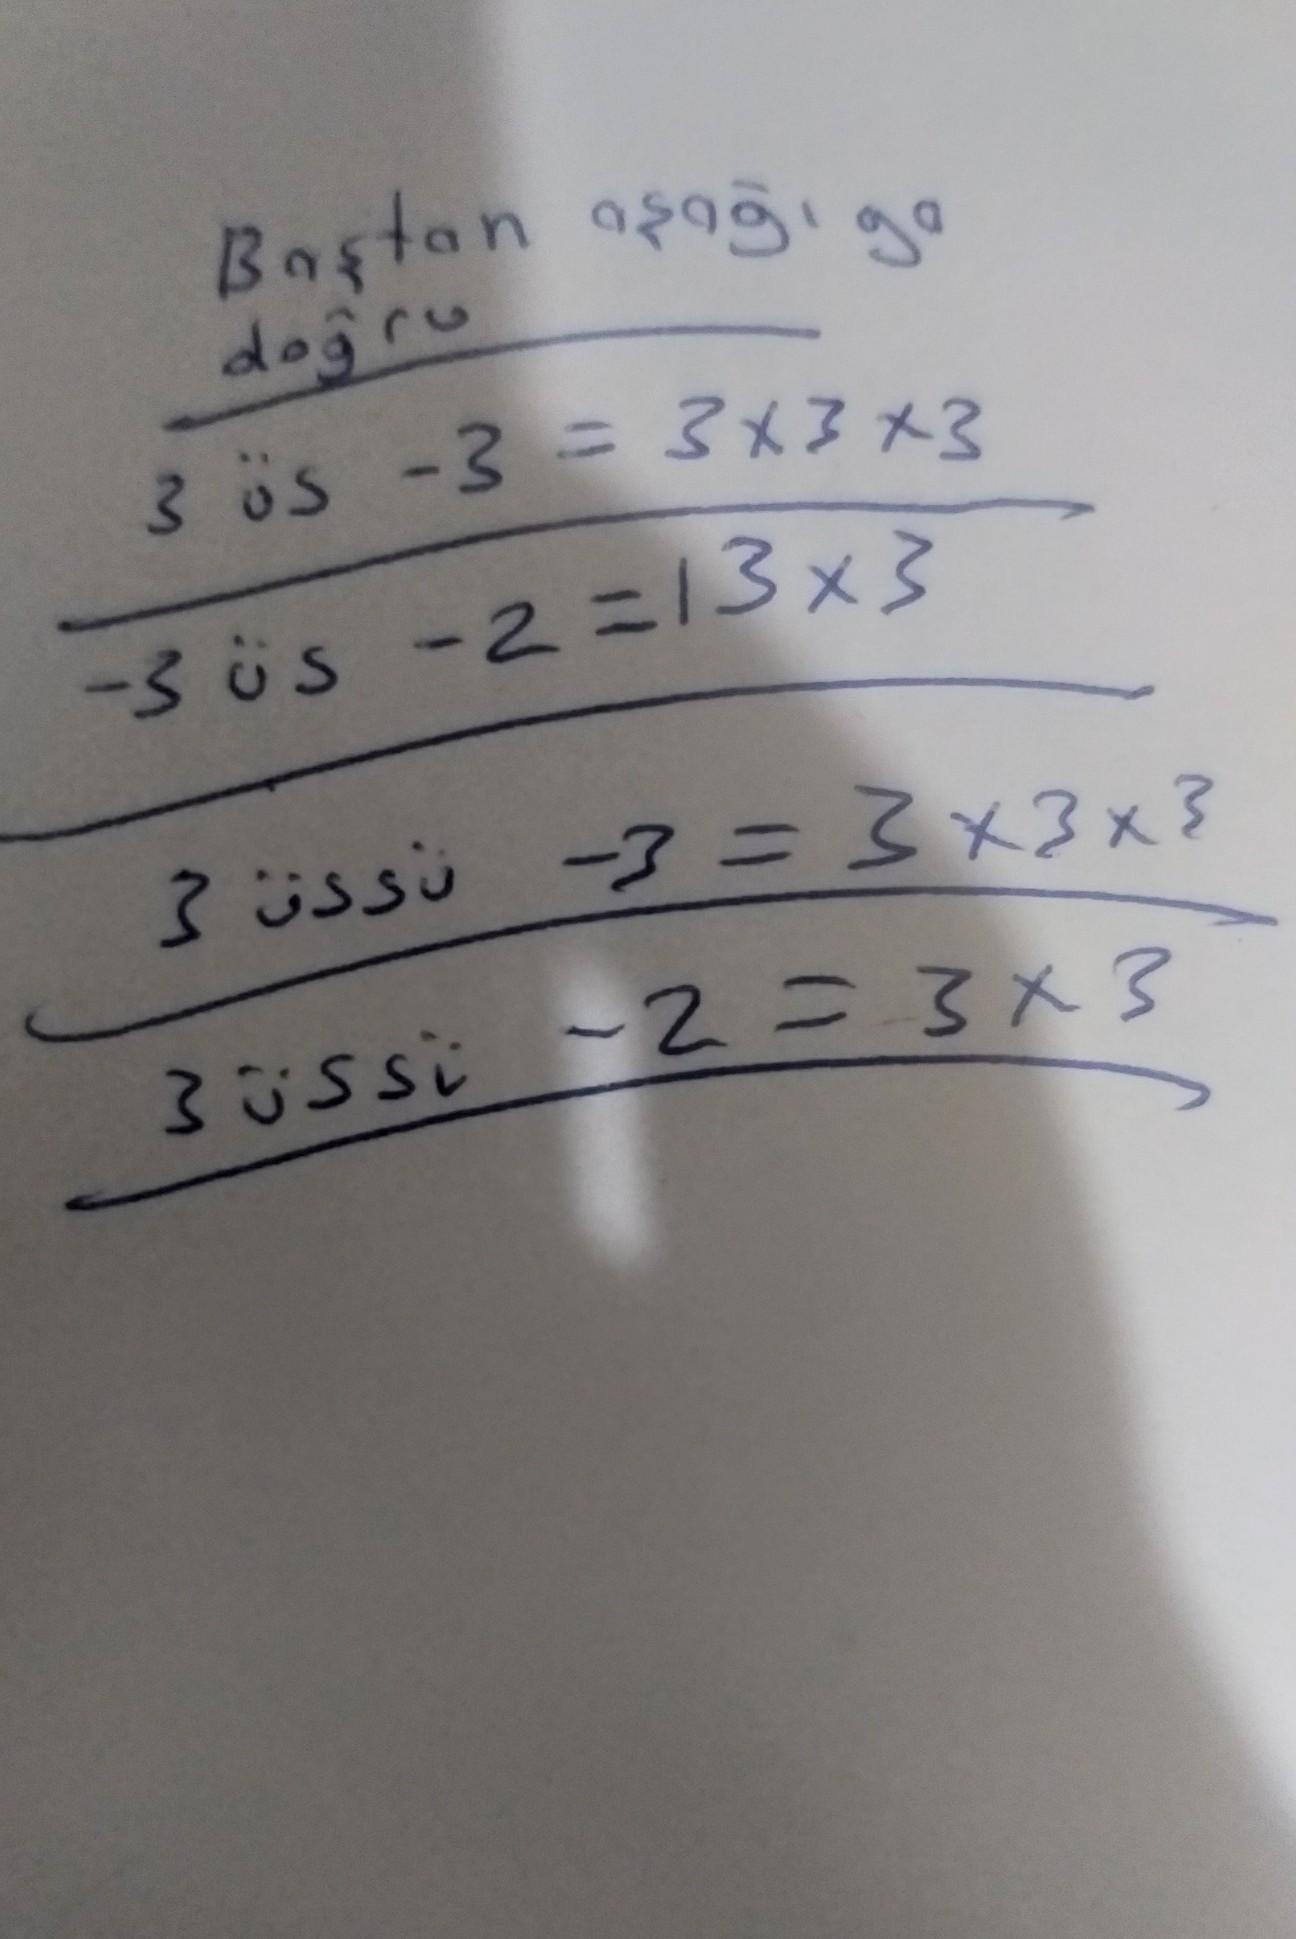 Baştan aşağı ya
doğru
3 üs -3 = 3x3x3
-3 üs -2 = 13x3
3 üssü -3 = 3x3x3
3 üssü -2 = 3x3